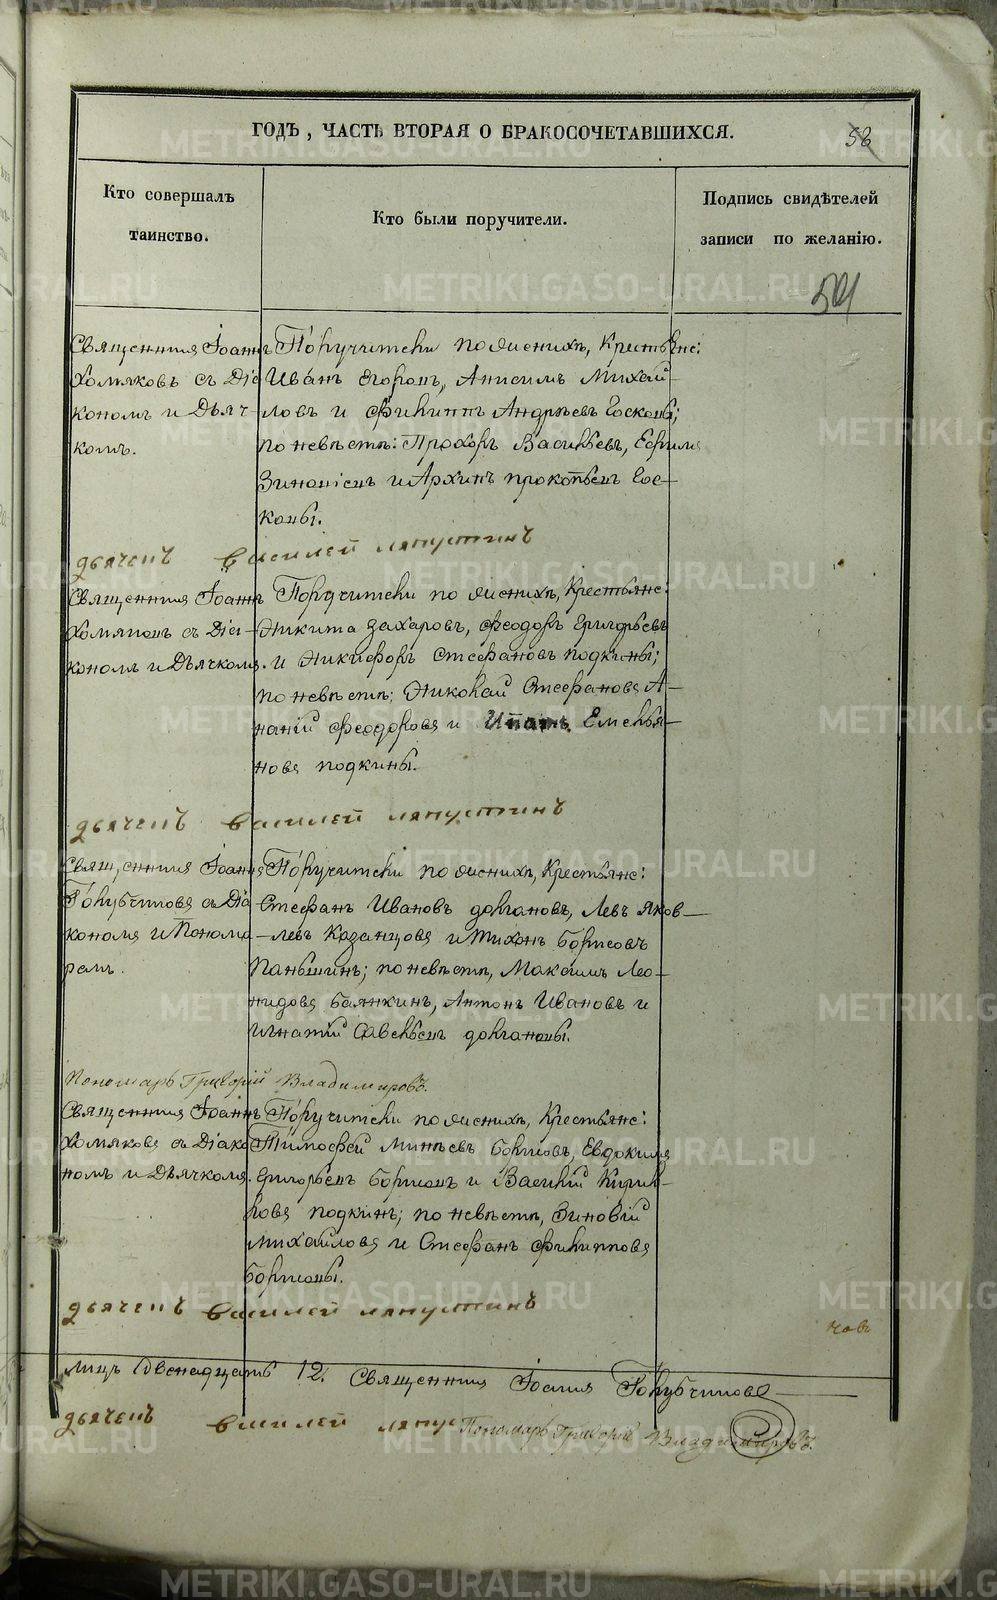 ГОДЪ, ЧАСТЬ ВТОРАЯ О БРАКОСОЧЕТАВШИХСЯ.
58
Кто совершалъ
таинство.
Кто были поручители.
Подпись свидѣтелей
записи по желанію.
Священникъ Іоаннъ
Хомяковъ съ Діа
кономъ и Дьяч-
комъ.
Поручители по женихѣ, Крестьяне:
Иванъ Егоровъ, Анисимъ Михай-
ловъ и Филиппъ Андрѣевъ Еськовы;
по невѣстѣ: Прохоръ Васильевъ, Ефимъ
Зиновіевъ и Архипъ Прокопьевъ Есь-
ковы.
дьячекъ василей ляпустинъ
Священникъ Іоаннъ
Хомяковъ съ Діа-
кономъ и Дьячкомъ.
Поручители по женихѣ, Крестьяне:
Никита Захаровъ, Феодоръ Григорьевъ
и Никифоръ Стефановъ Подкины;
по невѣстѣ; Николай Стефановъ А-
наній Феодоровъ и Ипатъ Емелья-
новъ Подкины.
дьячекъ василей ляпустинъ
Священникъ Іоаннъ
Голубчиковъ съ Діа
кономъ и Понома
ремъ.
Поручители по женихѣ, Крестьяне:
Стефанъ Ивановъ Долгановъ, Левъ Яков-
левъ Казанцовъ и Тихонъ Борисовъ
Паньшинъ; по невѣстѣ, Максимъ Лео-
нидовъ Баянкинъ, Антонъ Ивановъ и
Игнатій Савельевъ Долгановы.
Пономарь Григорій Владимировъ.
Священникъ Іоаннъ
Хомяковъ съ Діако
номъ и Дьячкомъ.
Поручители по женихѣ, Крестьяне:
Тимофей Минѣевъ Борисовъ, Евдокимъ
Григорьевъ Борисовъ и Василій Кирил-
ловъ Подкинъ; по невѣстѣ, Зиновій
Михайловъ и Стефанъ Филипповъ
Борисовы.
дьячекъ василей ляпустинъ
лицъ двенадцать 12. Священникъ Іоаннъ Голубчиковъ
дьячекъ василей ляпус Пономарь Григорій Владимировъ.
METRIKI.GASO-URAL.RU